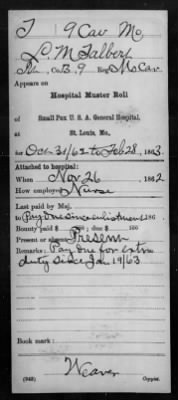 T 9 Cav Mo.
L. M. Talbert
Co. B. 9 Reg Mo Cav
Appears on
Hospital Muster Roll
of Small Pox U. S. A. General Hospital,
at St. Louis, Mo.,
for Oct 31/62 to Feb 28, 1863.
Attached to hospital:
When Nov 26, 1862
How employed Nurse
Last paid by Maj.
to Pay Due since enlistment 186 .
Bounty paid $ 100; due $ 100
Present or absent Present
Remarks: Pay due for extra
duty since Jan 19/63
Book mark:
Weaver
(940) Copyist.